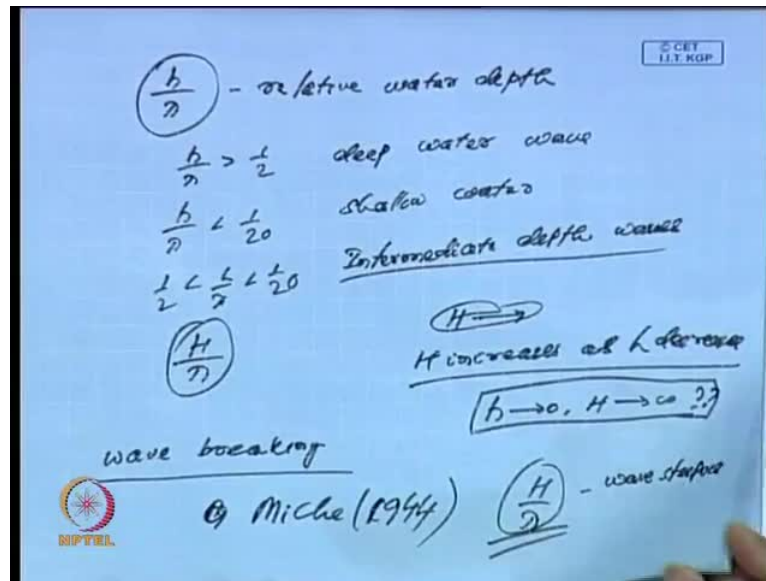 © CET
I.I.T. KGP
h/λ - relative water depth
h/λ > 1/2 deep water wave
h/λ < 1/20 shallow water
1/2 < h/λ < 1/20 Intermediate depth waves
H/λ
H →
H increases as h decrease
h → 0, H → ∞ ??
wave breaking
Miche (1944) H/λ - wave steepness
NPTEL